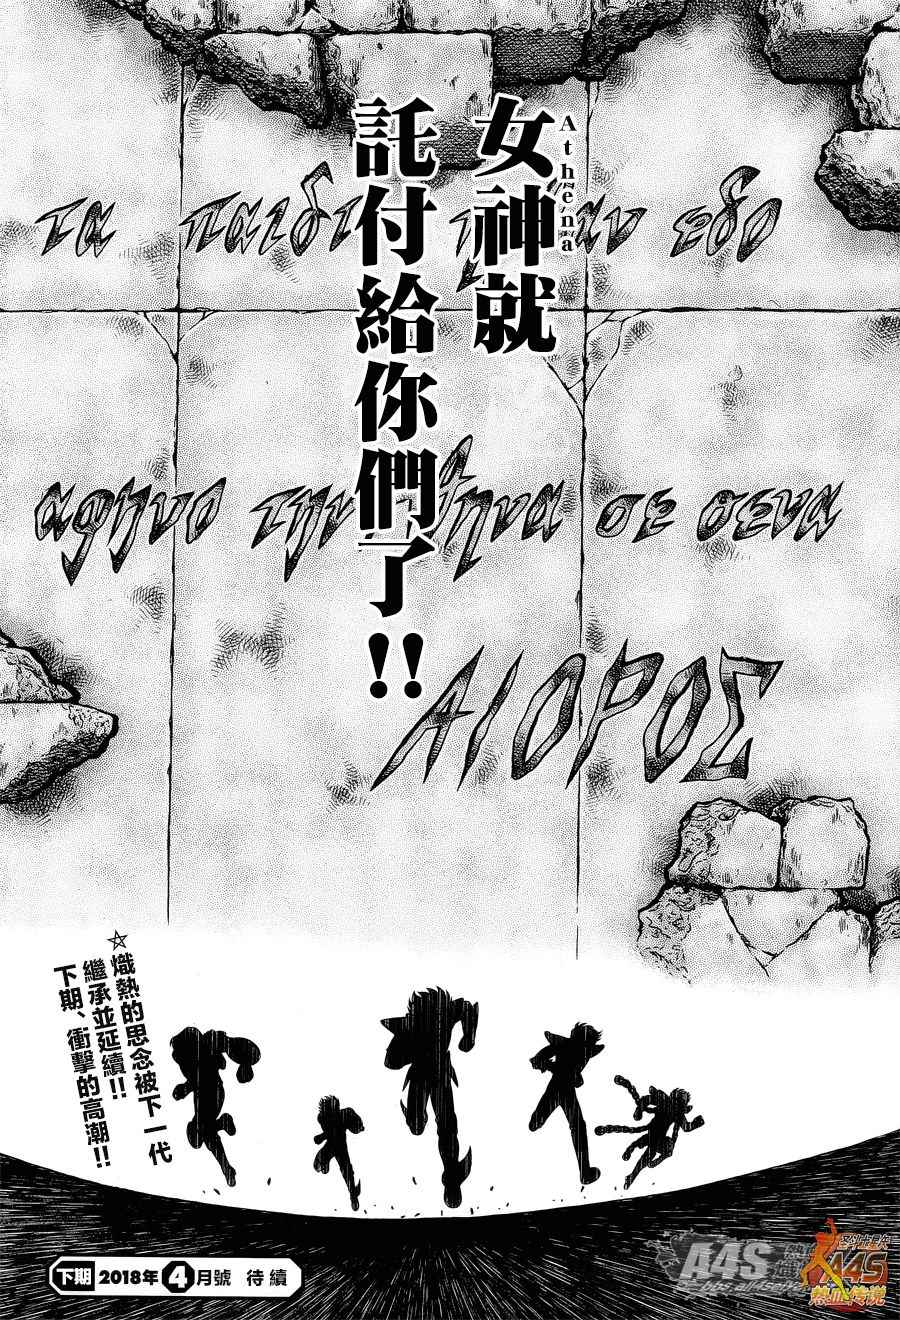 女神就
Athena
託付給你們了!!
τα παιδι
αν εδο
αφηνο την
ηνα σε σενα
ΑΙΟΡΟΣ
☆熾熱的思念被下一代
繼承並延續!!
下期、衝擊的高潮!!
下期 2018年4月號 待續
A4S
圣斗士星矢
A4S
熱血传说